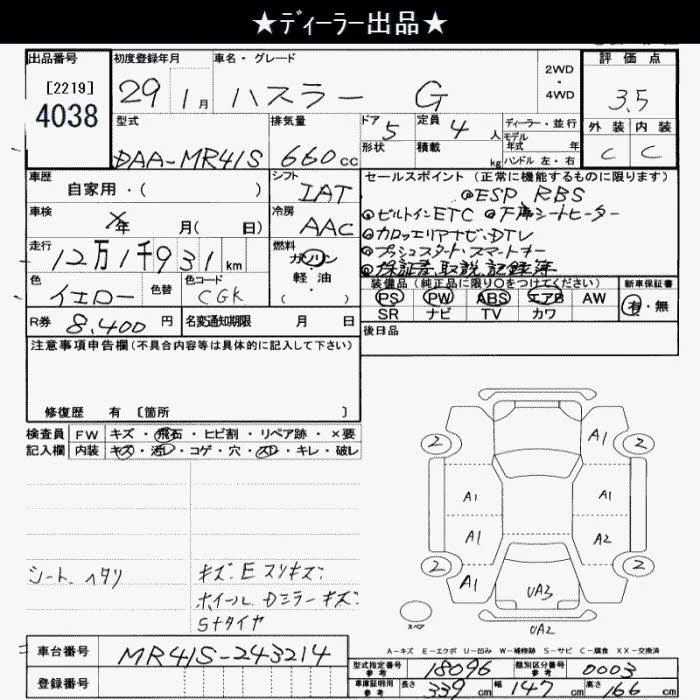 ★ディーラー出品★
出品番号 [2219] 4038
初度登録年月 29 1月
車名・グレード ハスラー G
2WD・4WD
評価点 3.5
外装 C 内装 C
型式 DAA-MR41S
排気量 660cc
ドア 5 形状
定員 4人 積載 kg
ディーラー・並行
モデル年式 年
ハンドル 左・右
車歴 自家用・( )
シフト IAT
セールスポイント (正常に機能するものに限ります)
◎ESP RBS
◎ビルトインETC ◎下席シートヒーター
◎カロッエリアナビ・DTV
◎プッシュスタート・スマートキー
◎保証書、取説、記録簿
車検 年 月( 日)
冷房 AAC
走行 12万1千931km
燃料 ガソリン 軽油 ( ・ )
色 イエロー 色替
色コード CGK
装備品 (純正品に限り○をつけてください)
PS PW ABS エアB AW
SR ナビ TV カワ
新車保証書 有・無
R券 8,400円
名変通知期限 月 日
後日品
注意事項申告欄 (不具合内容等は具体的に記入して下さい)
修復歴 有 〔箇所 〕
検査員 FW キズ・飛石・ヒビ割・リペア跡・×要
記入欄 内装 キズ・汚レ・コゲ・穴・スレ・キレ・破レ
シート ヘタリ
キズ・E スリキズ・
ホイール・Dミラーキズ・
Sナタイヤ
2 A1 2
A1 A1
A1 A2
2 A1 UA3 2
スペア
UA2
A-キズ E-エクボ U-凹み W-補修跡 S-サビ C-腐食 XX-交換済
車台番号 MR41S-243214
登録番号
型式指定番号 参考 18096 類別区分番号 参考 0003
車庫証明用 参考 長さ 339cm 幅 147cm 高さ 166cm